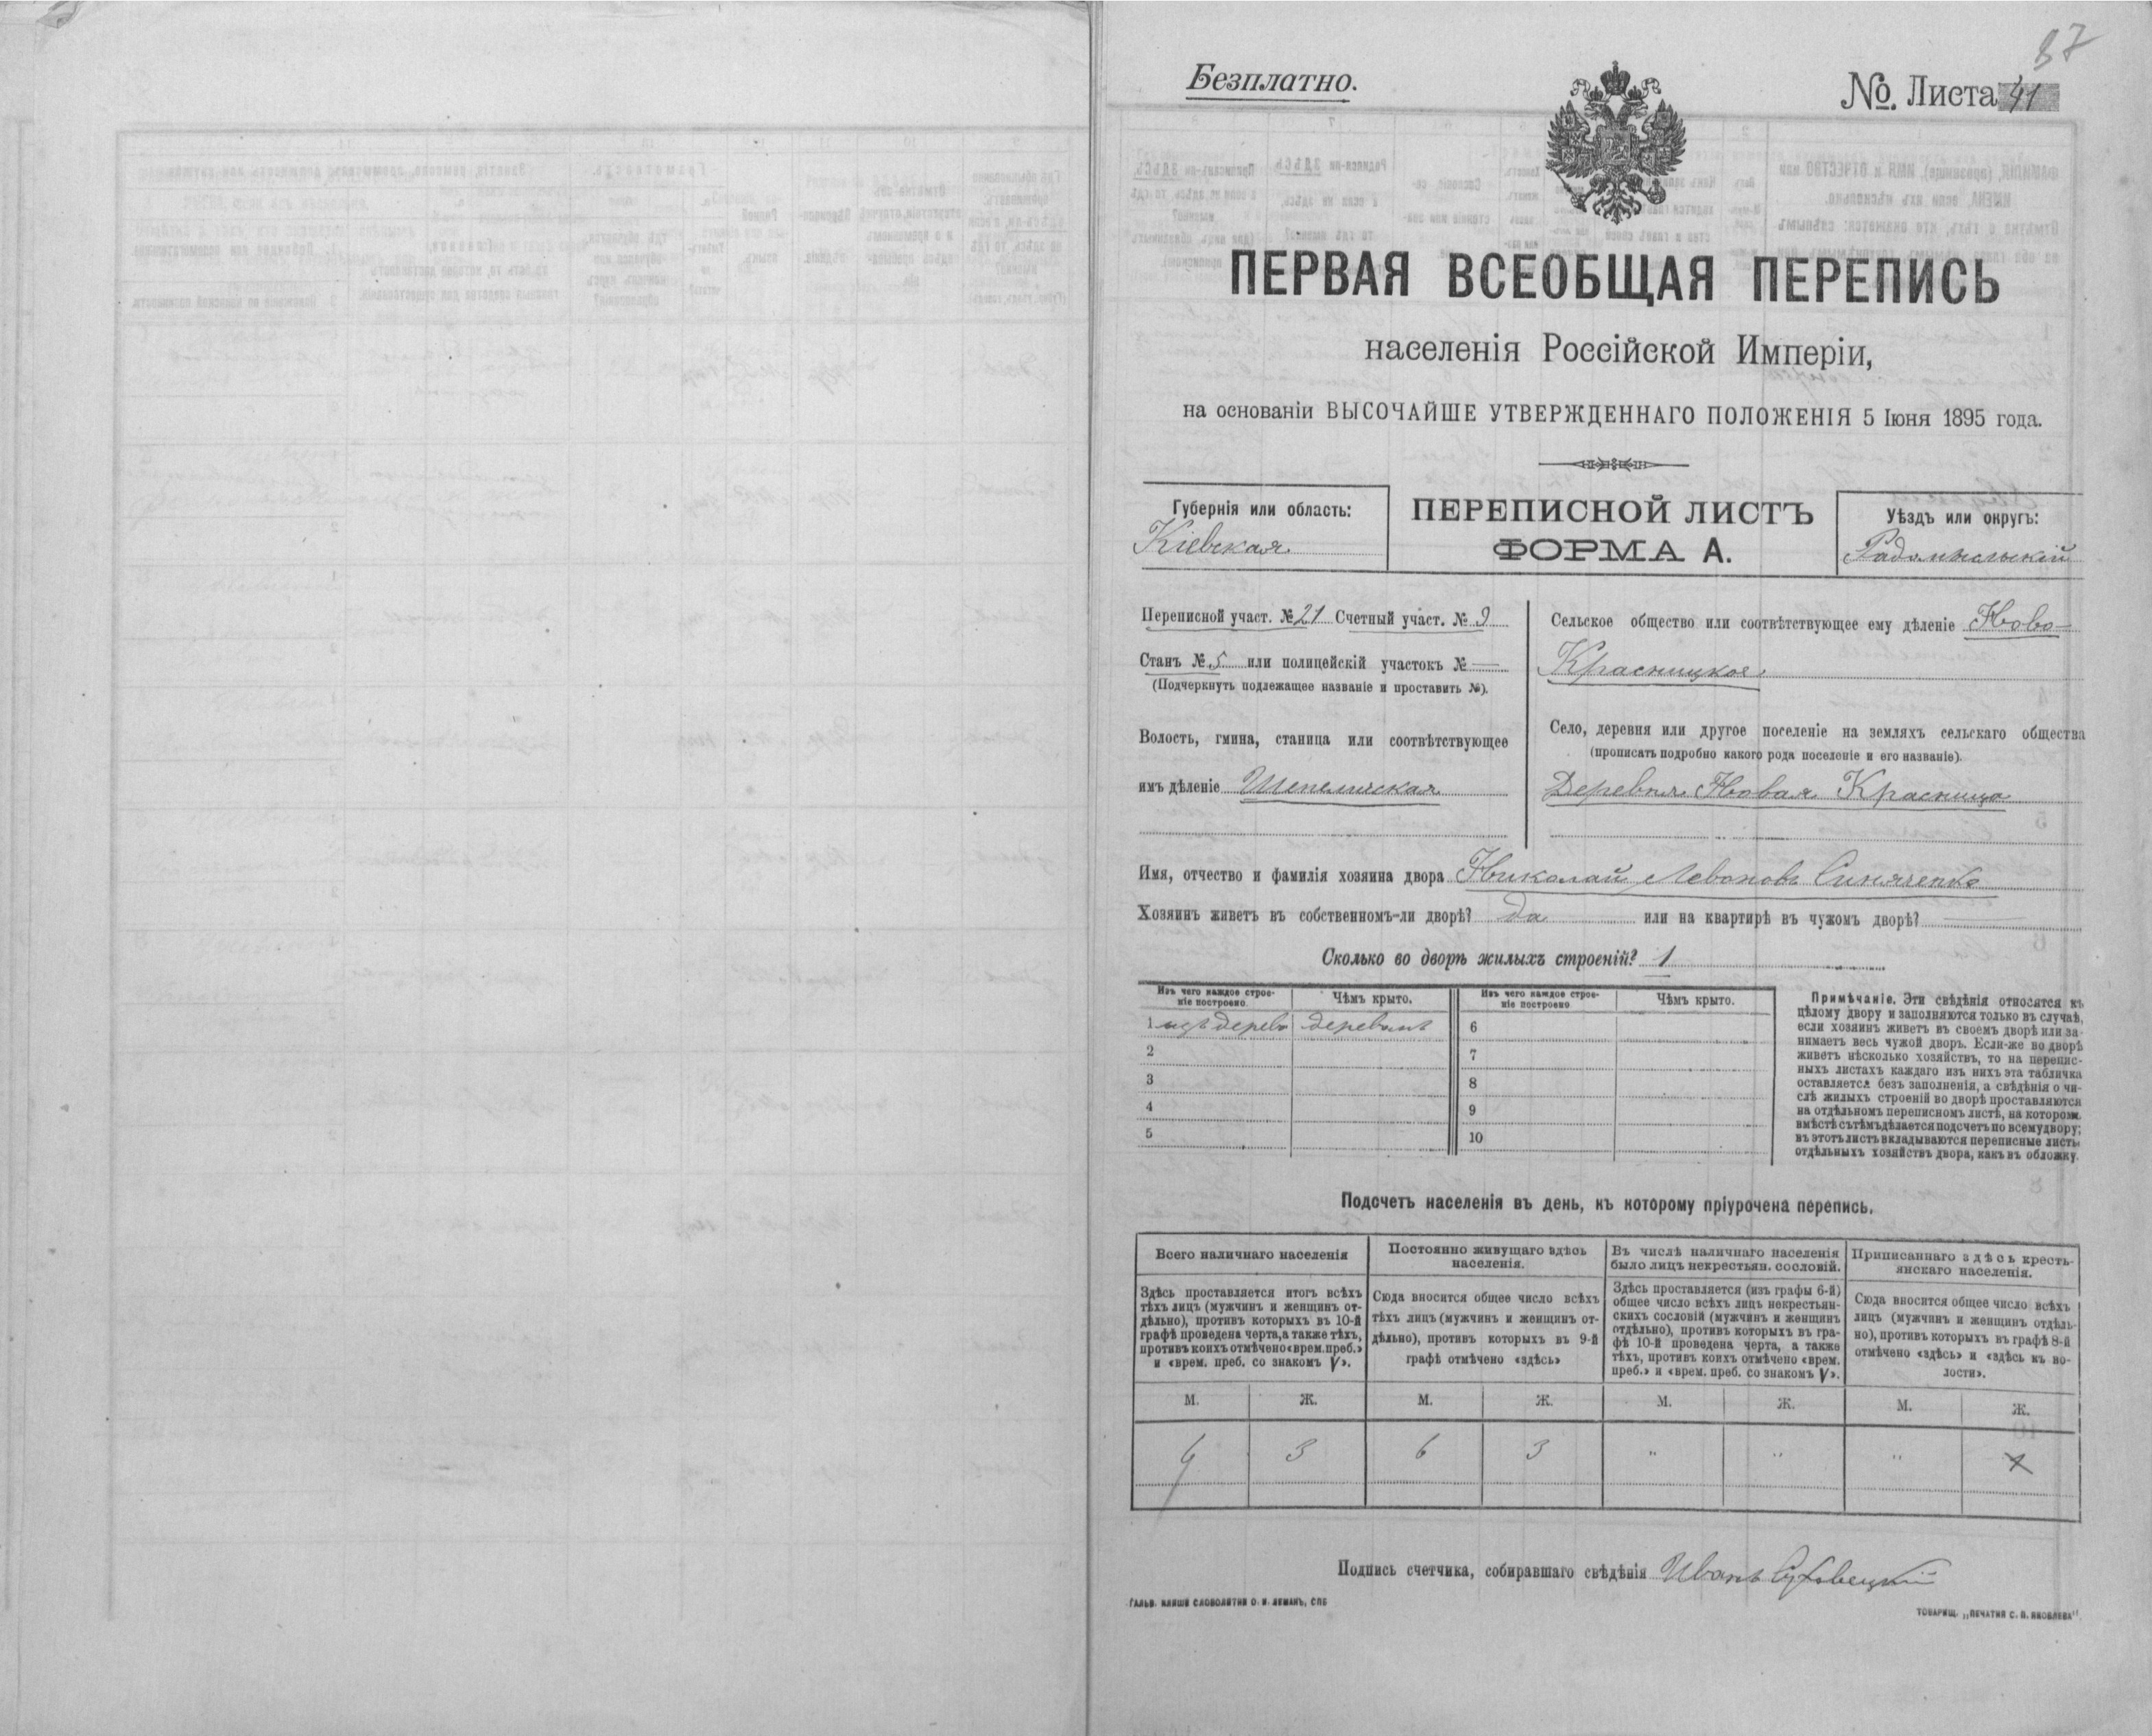 87
Безплатно.
№. Листа 41
ПЕРВАЯ ВСЕОБЩАЯ ПЕРЕПИСЬ
населенія Россійской Имперіи,
на основаніи ВЫСОЧАЙШЕ УТВЕРЖДЕННАГО ПОЛОЖЕНІЯ 5 Іюня 1895 года.
Губернія или область:
Кіевская
ПЕРЕПИСНОЙ ЛИСТЪ
ФОРМА А.
Уѣздъ или округъ:
Радомысльскій
Переписной участ. № 21 Счетный участ. № 9
Станъ № 5 или полицейскій участокъ № —
(Подчеркнуть подлежащее названіе и проставить №).
Волость, гмина, станица или соотвѣтствующее
имъ дѣленіе Шепеличская
Сельское общество или соотвѣтствующее ему дѣленіе Ново-
Красницкое
Село, деревня или другое поселеніе на земляхъ сельскаго общества
(прописать подробно какого рода поселеніе и его названіе).
Деревня Новая Красница
Имя, отчество и фамилія хозяина двора Николай Левоновъ Синяченко
Хозяинъ живетъ въ собственномъ-ли дворѣ? да или на квартирѣ въ чужомъ дворѣ? —
Сколько во дворѣ жилыхъ строеній? 1
Изъ чего каждое строе-
ніе построено.
Чѣмъ крыто.
Изъ чего каждое строе-
ніе построено
Чѣмъ крыто.
1 изъ дерева
6
2
7
3
8
4
9
5
10
Примѣчаніе. Эти свѣдѣнія относятся къ
цѣлому двору и заполняются только въ случаѣ,
если хозяинъ живетъ въ своемъ дворѣ или за-
нимаетъ весь чужой дворъ. Если-же во дворѣ
живетъ нѣсколько хозяйствъ, то на перепис-
ныхъ листахъ каждаго изъ нихъ эта табличка
оставляется безъ заполненія, а свѣдѣнія о чи-
слѣ жилыхъ строеній во дворѣ проставляются
на отдѣльномъ переписномъ листѣ, на которомъ
вмѣстѣ съ тѣмъ дѣлается подсчетъ по всему двору;
въ этотъ листъ вкладываются переписные листы
отдѣльныхъ хозяйствъ двора, какъ въ обложку.
Подсчетъ населенія въ день, къ которому пріурочена перепись.
Всего наличнаго населенія
Постоянно живущаго здѣсь
населенія.
Въ числѣ наличнаго населенія
было лицъ некрестьян. сословій.
Приписаннаго здѣсь кресть-
янскаго населенія.
Здѣсь проставляется итогъ всѣхъ
тѣхъ лицъ (мужчинъ и женщинъ от-
дѣльно), противъ которыхъ въ 10-й
графѣ проведена черта, а также тѣхъ,
противъ коихъ отмѣчено «врем. преб.»
и «врем. преб. со знакомъ V».
Сюда вносится общее число всѣхъ
тѣхъ лицъ (мужчинъ и женщинъ от-
дѣльно), противъ которыхъ въ 9-й
графѣ отмѣчено «здѣсь»
Здѣсь проставляется (изъ графы 6-й)
общее число всѣхъ лицъ некрестьян-
скихъ сословій (мужчинъ и женщинъ
отдѣльно), противъ которыхъ въ гра-
фѣ 10-й проведена черта, а также
тѣхъ, противъ коихъ отмѣчено «врем.
преб.» и «врем. преб. со знакомъ V».
Сюда вносится общее число всѣхъ
лицъ (мужчинъ и женщинъ отдѣль-
но), противъ которыхъ въ графѣ 8-й
отмѣчено «здѣсь» и «здѣсь къ во-
лости».
М. Ж. М. Ж. М. Ж. М. Ж.
3 6 3 " " "
Подпись счетчика, собиравшаго свѣдѣнія Иванъ
ГАЛЬВ. КЛИШЕ СЛОВОЛИТНИ О. И. ЛЕМАНЪ, СПБ
ТОВАРИЩ. „ПЕЧАТНЯ С. П. ЯКОВЛЕВА"